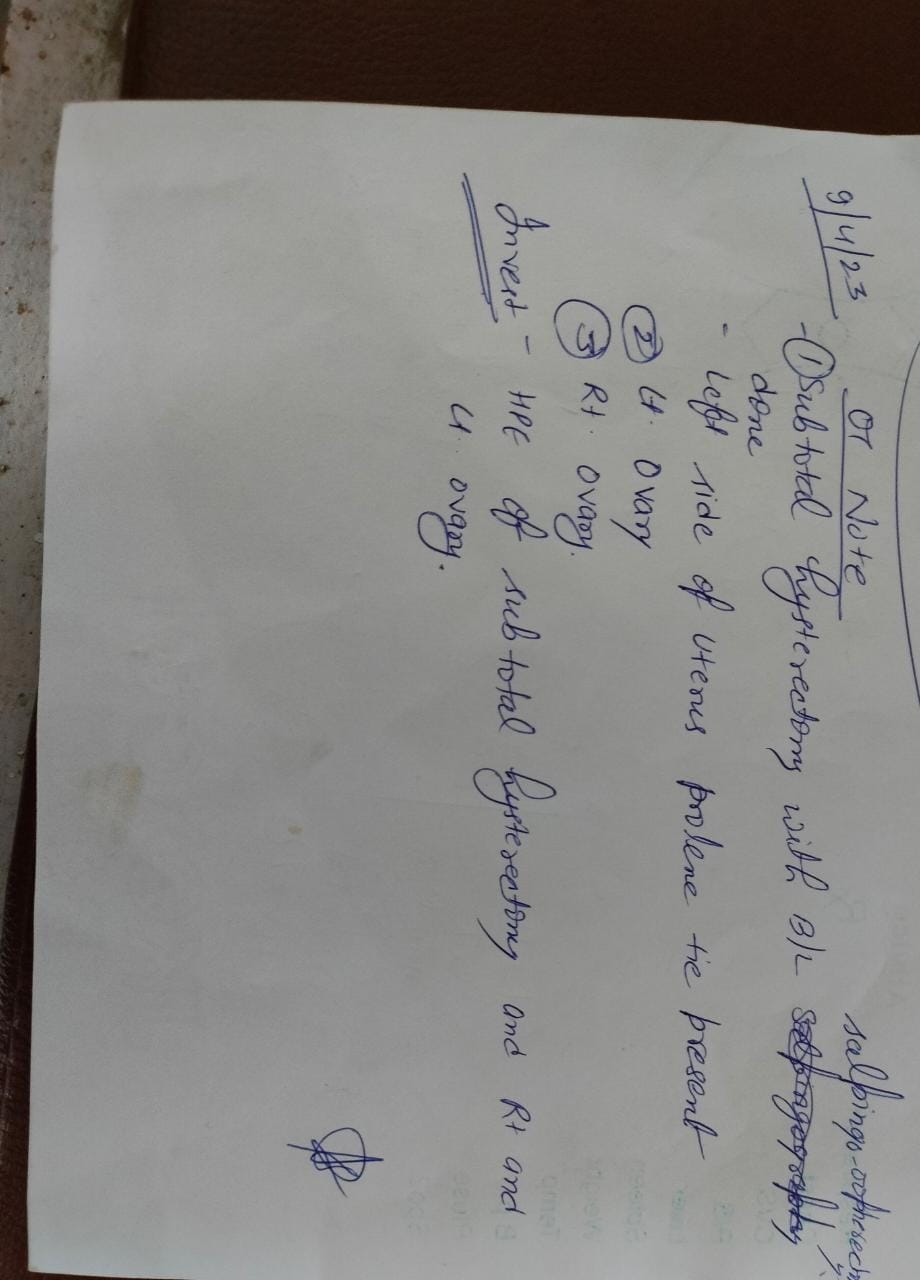 OT Note
9/4/23
salpingo-oopherectomy
- ① Subtotal hysterectomy with B/L
done
- Left side of uterus prolene tie present
② Lt. Ovary
③ Rt. Ovary.
Invest - HPE of subtotal hysterectomy and Rt and
Lt. ovary.